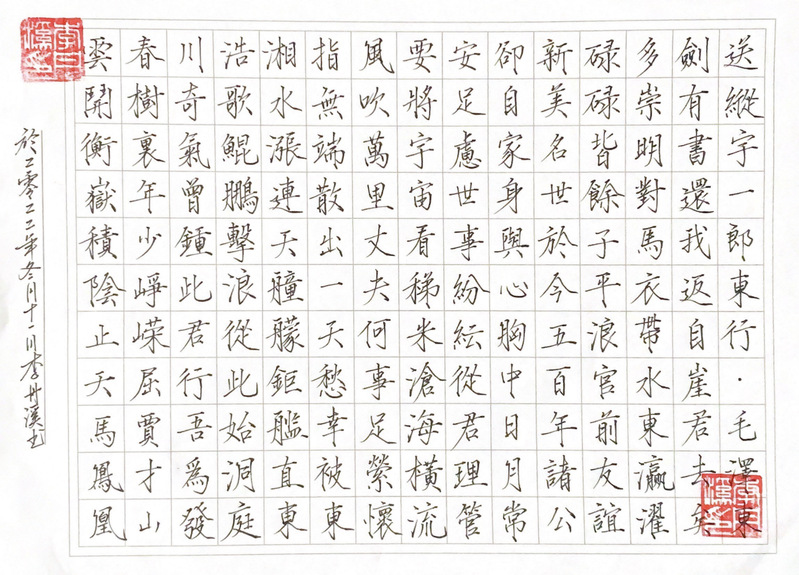 送縱宇一郎東行·毛澤東
雲開衡嶽積陰止天馬鳳凰
春樹裏年少崢嶸屈賈才山
川奇氣曾鍾此君行吾爲發
浩歌鯤鵬擊浪從此始洞庭
湘水漲連天艟艨鉅艦直東
指無端散出一天愁幸被東
風吹萬里丈夫何事足縈懷
要將宇宙看稊米滄海橫流
安足慮世事紛紜從君理管
卻自家身與心胸中日月常
新美名世於今五百年諸公
碌碌皆餘子平浪官前友誼
多崇明對馬衣帶水東瀛濯
劍有書還我返自崖君去矣
於二零二二年冬月十一日李丹溪书
李丹溪印
李丹溪印